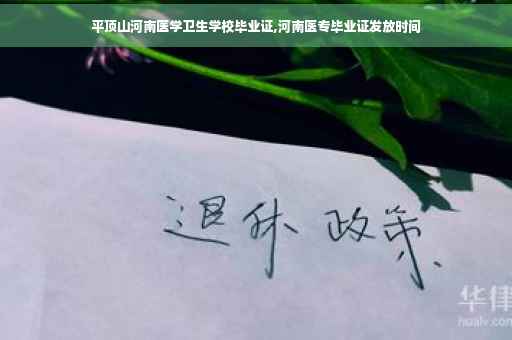 平顶山河南医学卫生学校毕业证,河南医专毕业证发放时间
退休 政策
华律
hualv.com